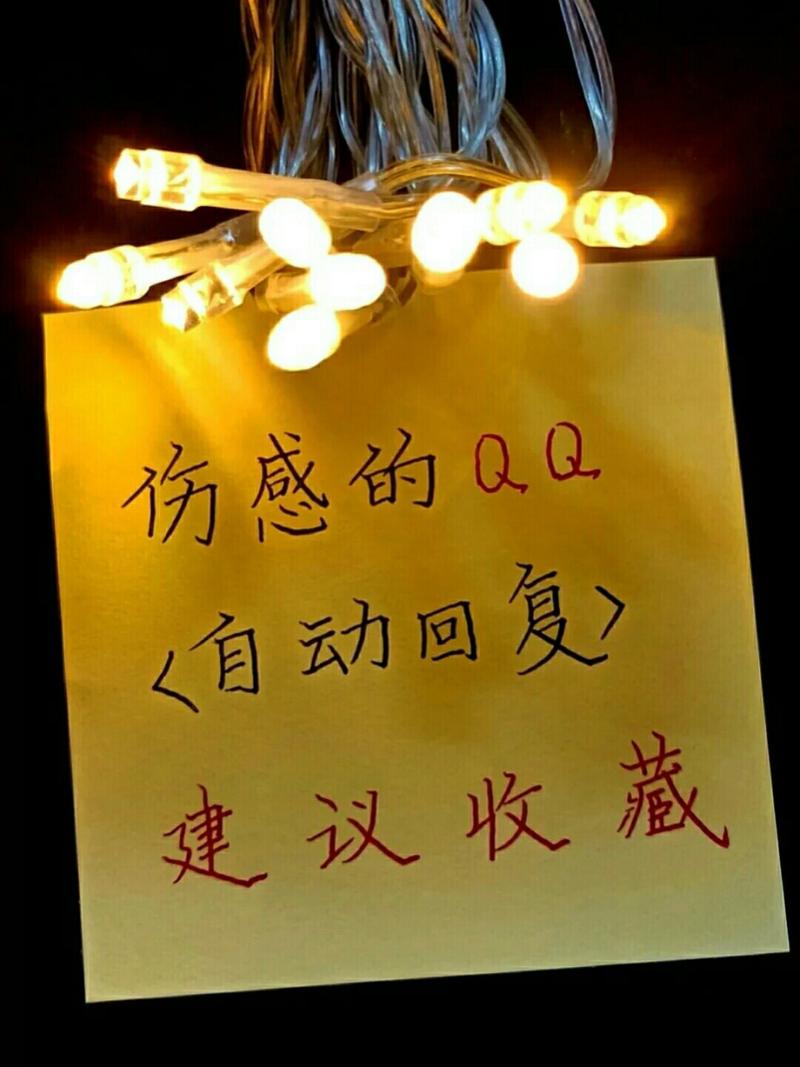 伤感的QQ
<自动回复>
建议收藏